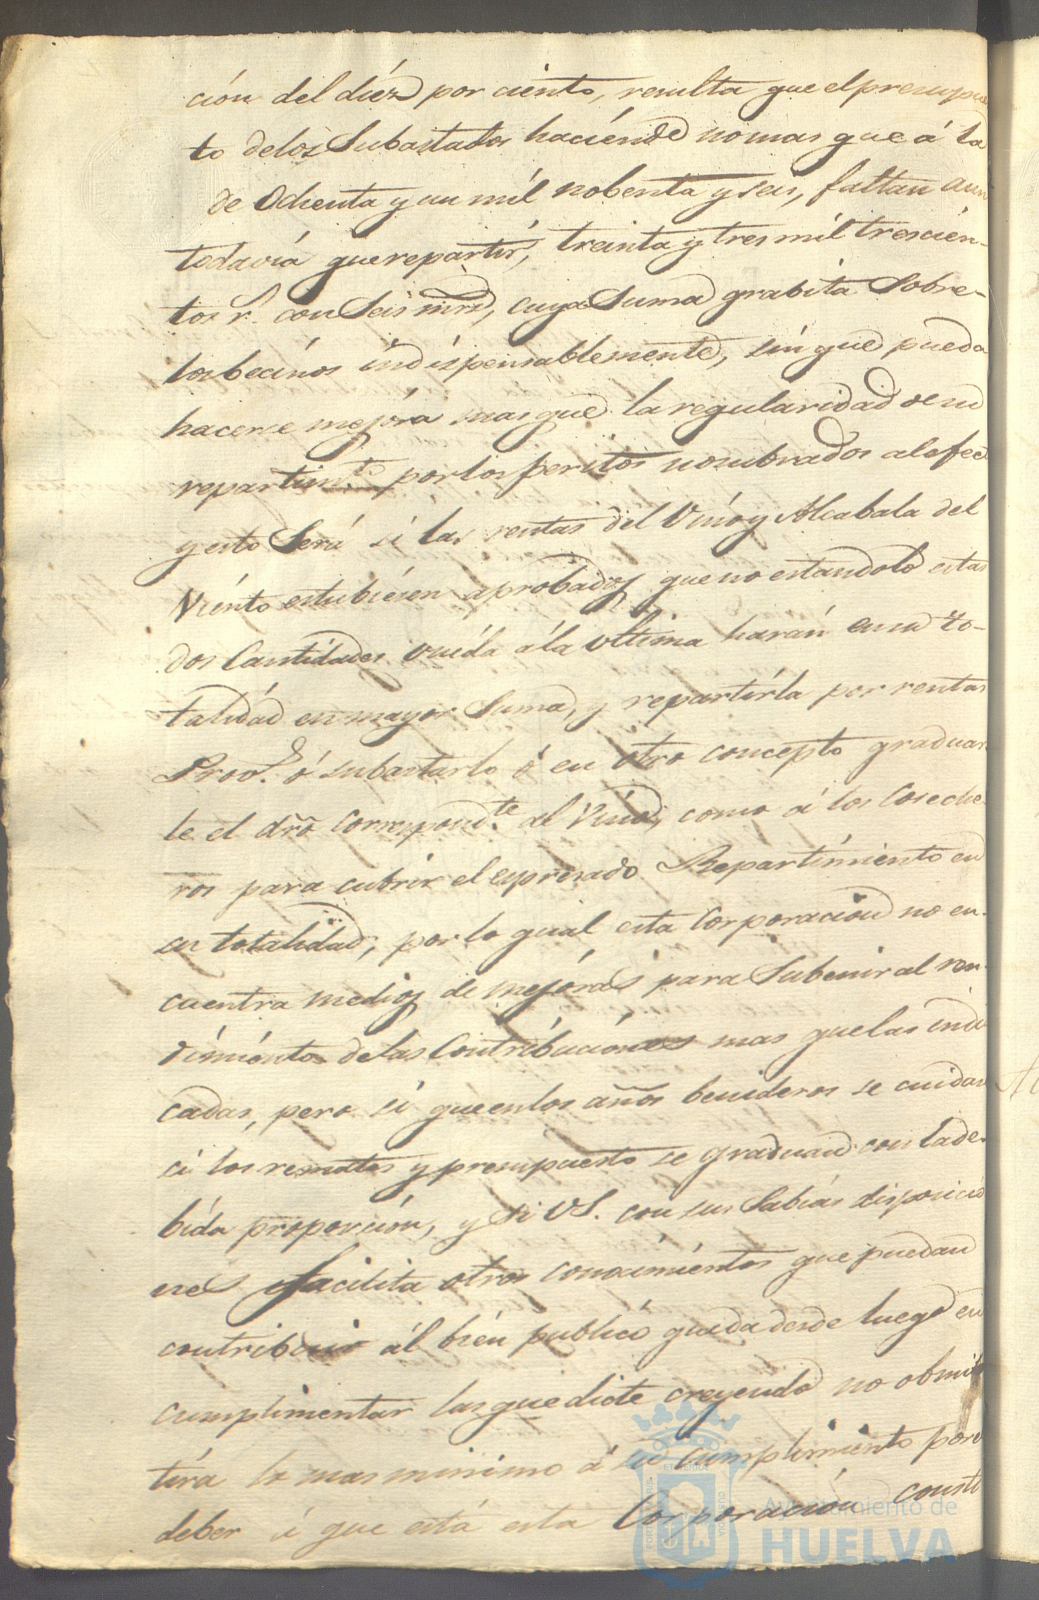 ción del diéz por ciento, resulta que el presupues
to delos Subastados haciénde no mas que á la
de Ochenta y un mil nobenta y seis, faltan aun
todavía que repartir, treinta y tres mil trescién-
tos r.ˢ con Seis mrs, cuya Suma grabita Sobre-
los becinos indispensablemente, sin que pueda
hacerse mejora mas que la regularidad de su
repartim.ᵗᵒ por los peritos nombrados al efecto
y esto Será si las rentas del Vino y Alcabala del
Viento estubiésen aprobadas, que no estandolo estas
dos Cantidades unida á la Ultima harán en su to-
talidad en mayor Suma, y repartirla por rentas
Prov.ˢ ó subastarlo ó en otro concepto graduar
le el dro correspond.ᵗᵉ al Vino, como á los Coseche-
ros para cubrir el expresado Repartimiento en
su totalidad, por lo qual esta Corporacion no en-
cuentra medios de mejóras para Subenir al ren-
dimiénto de las Contribuciónes mas que las indi
cadas, pero si que en los años benideros se cuidar
si los remates y presupuesto se graduan con la de-
bida proporción, y si VS. con sus Sabias disposicio
nes facilita otros conocimientos que puedan
contribuir ál bién publicó queda desde luego en
cumplimentar las que dicte creyendo no obmi
tira lo mas minimo á su cumplimiento por el
deber á que está esta Corporación consti
Ayuntamiento de
HUELVA